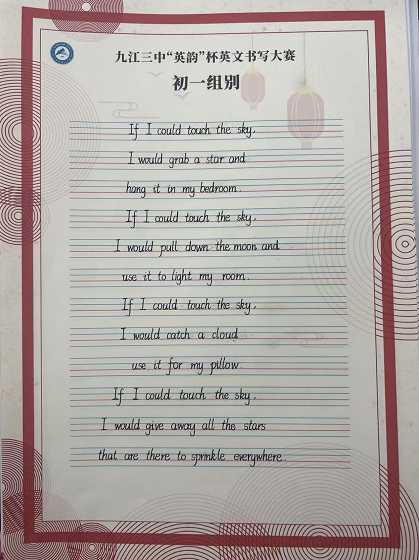 九江三中“英韵”杯英文书写大赛
初一组别
If I could touch the sky,
I would grab a star and
hang it in my bedroom.
If I could touch the sky,
I would pull down the moon and
use it to light my room.
If I could touch the sky,
I would catch a cloud
use it for my pillow.
If I could touch the sky,
I would give away all the stars
that are there to sprinkle everywhere.